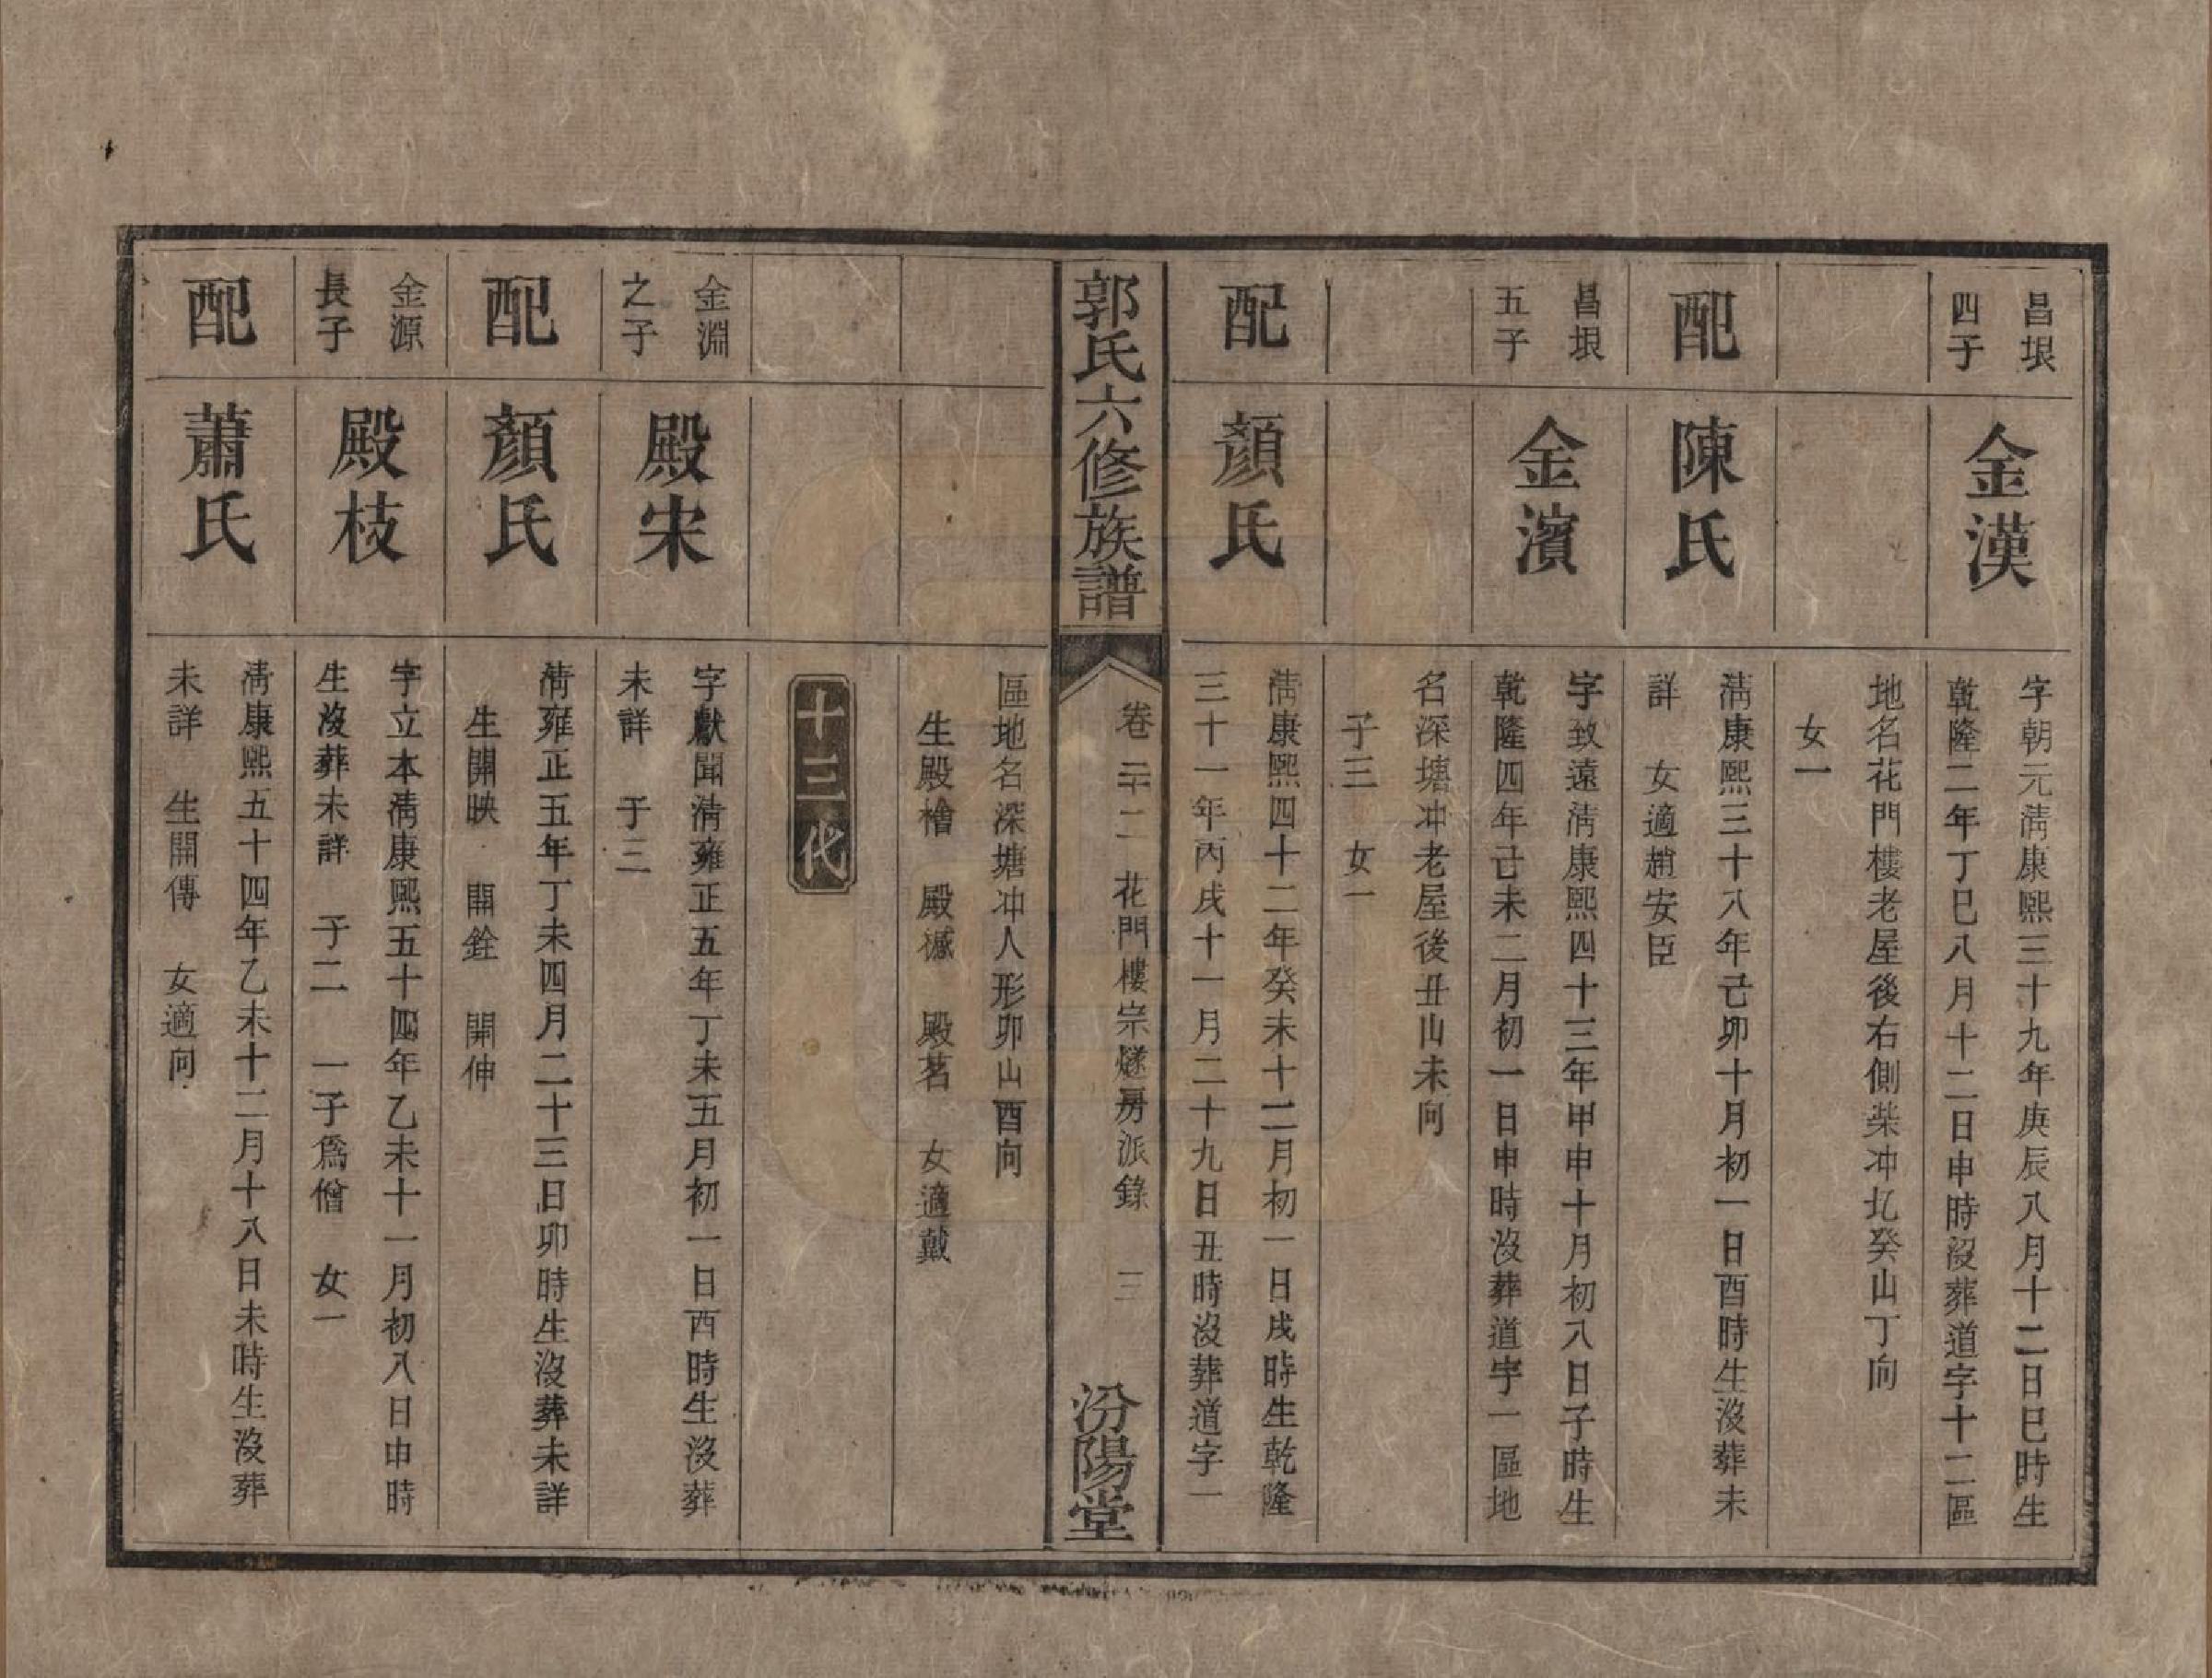 昌垠
四子
金漢
字朝元淸康熙三十九年庚辰八月十二日巳時生
乾隆二年丁巳八月十二日申時沒葬道字十二區
地名花門樓老屋後右側柴冲圠癸山丁向
女一
配
陳氏
淸康熙三十八年己卯十月初一日酉時生沒葬未
詳　女適趙安臣
昌垠
五子
金濱
字致遠淸康熙四十三年甲申十月初八日子時生
乾隆四年己未二月初一日申時沒葬道字一區地
名深塘冲老屋後丑山未向
子三　女一
配
顏氏
淸康熙四十二年癸未十二月初一日戌時生乾隆
三十一年丙戌十一月二十九日丑時沒葬道字一
郭氏六修族譜
卷二十二　花門樓宗燧房派錄　三
汾陽堂
區地名深塘冲人形卯山酉向
生殿檜　殿櫶　殿茗　女適戴
十三代
金淵
之子
殿宋
字獻聞淸雍正五年丁未五月初一日酉時生沒葬
未詳　子三
配
顏氏
淸雍正五年丁未四月二十三日卯時生沒葬未詳
生開映　開銓　開伸
金源
長子
殿枝
字立本淸康熙五十四年乙未十一月初八日申時
生沒葬未詳　子二　一子爲僧　女一
配
蕭氏
淸康熙五十四年乙未十二月十八日未時生沒葬
未詳　生開傳　女適向